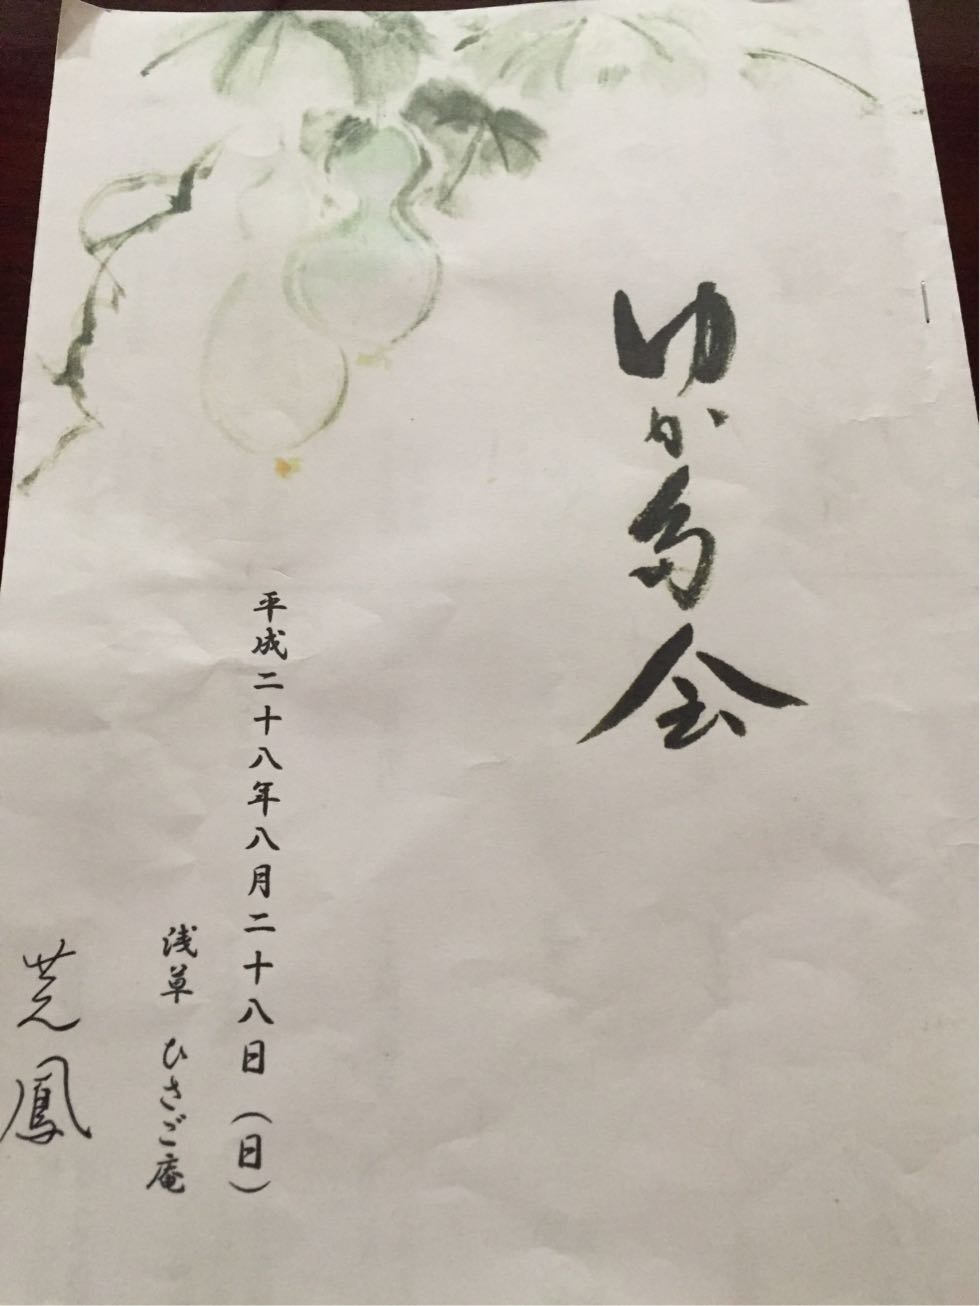 ゆか多会
平成二十八年八月二十八日(日)
浅草 ひさご庵
芝鳳